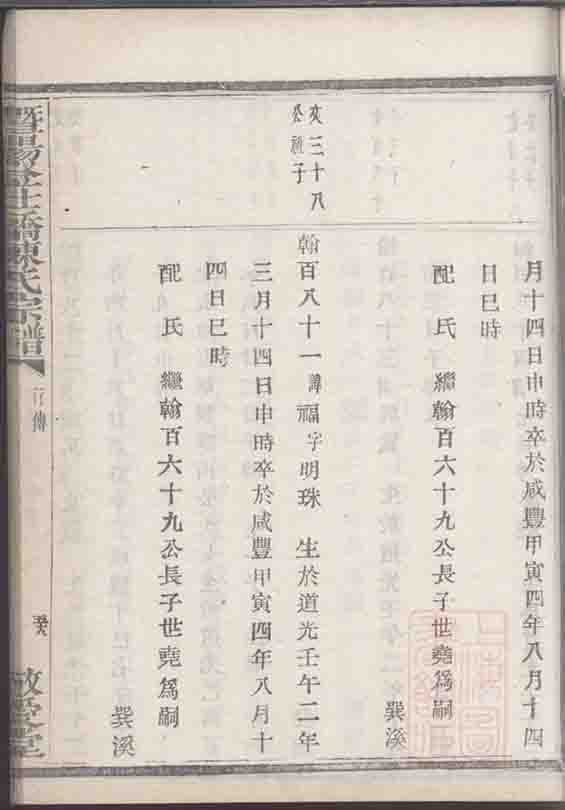 月十四日申時卒於咸豐甲寅四年八月十四
日巳時
配氏 繼翰百六十九公長子世堯為嗣
巽溪
文三十八
公祖子
翰百八十一諱福字明珠 生於道光壬午二年
三月十四日申時卒於咸豐甲寅四年八月十
四日巳時
配氏 繼翰百六十九公長子世堯為嗣
巽溪
暨陽 橋陳氏宗譜
行傳
敬愛堂